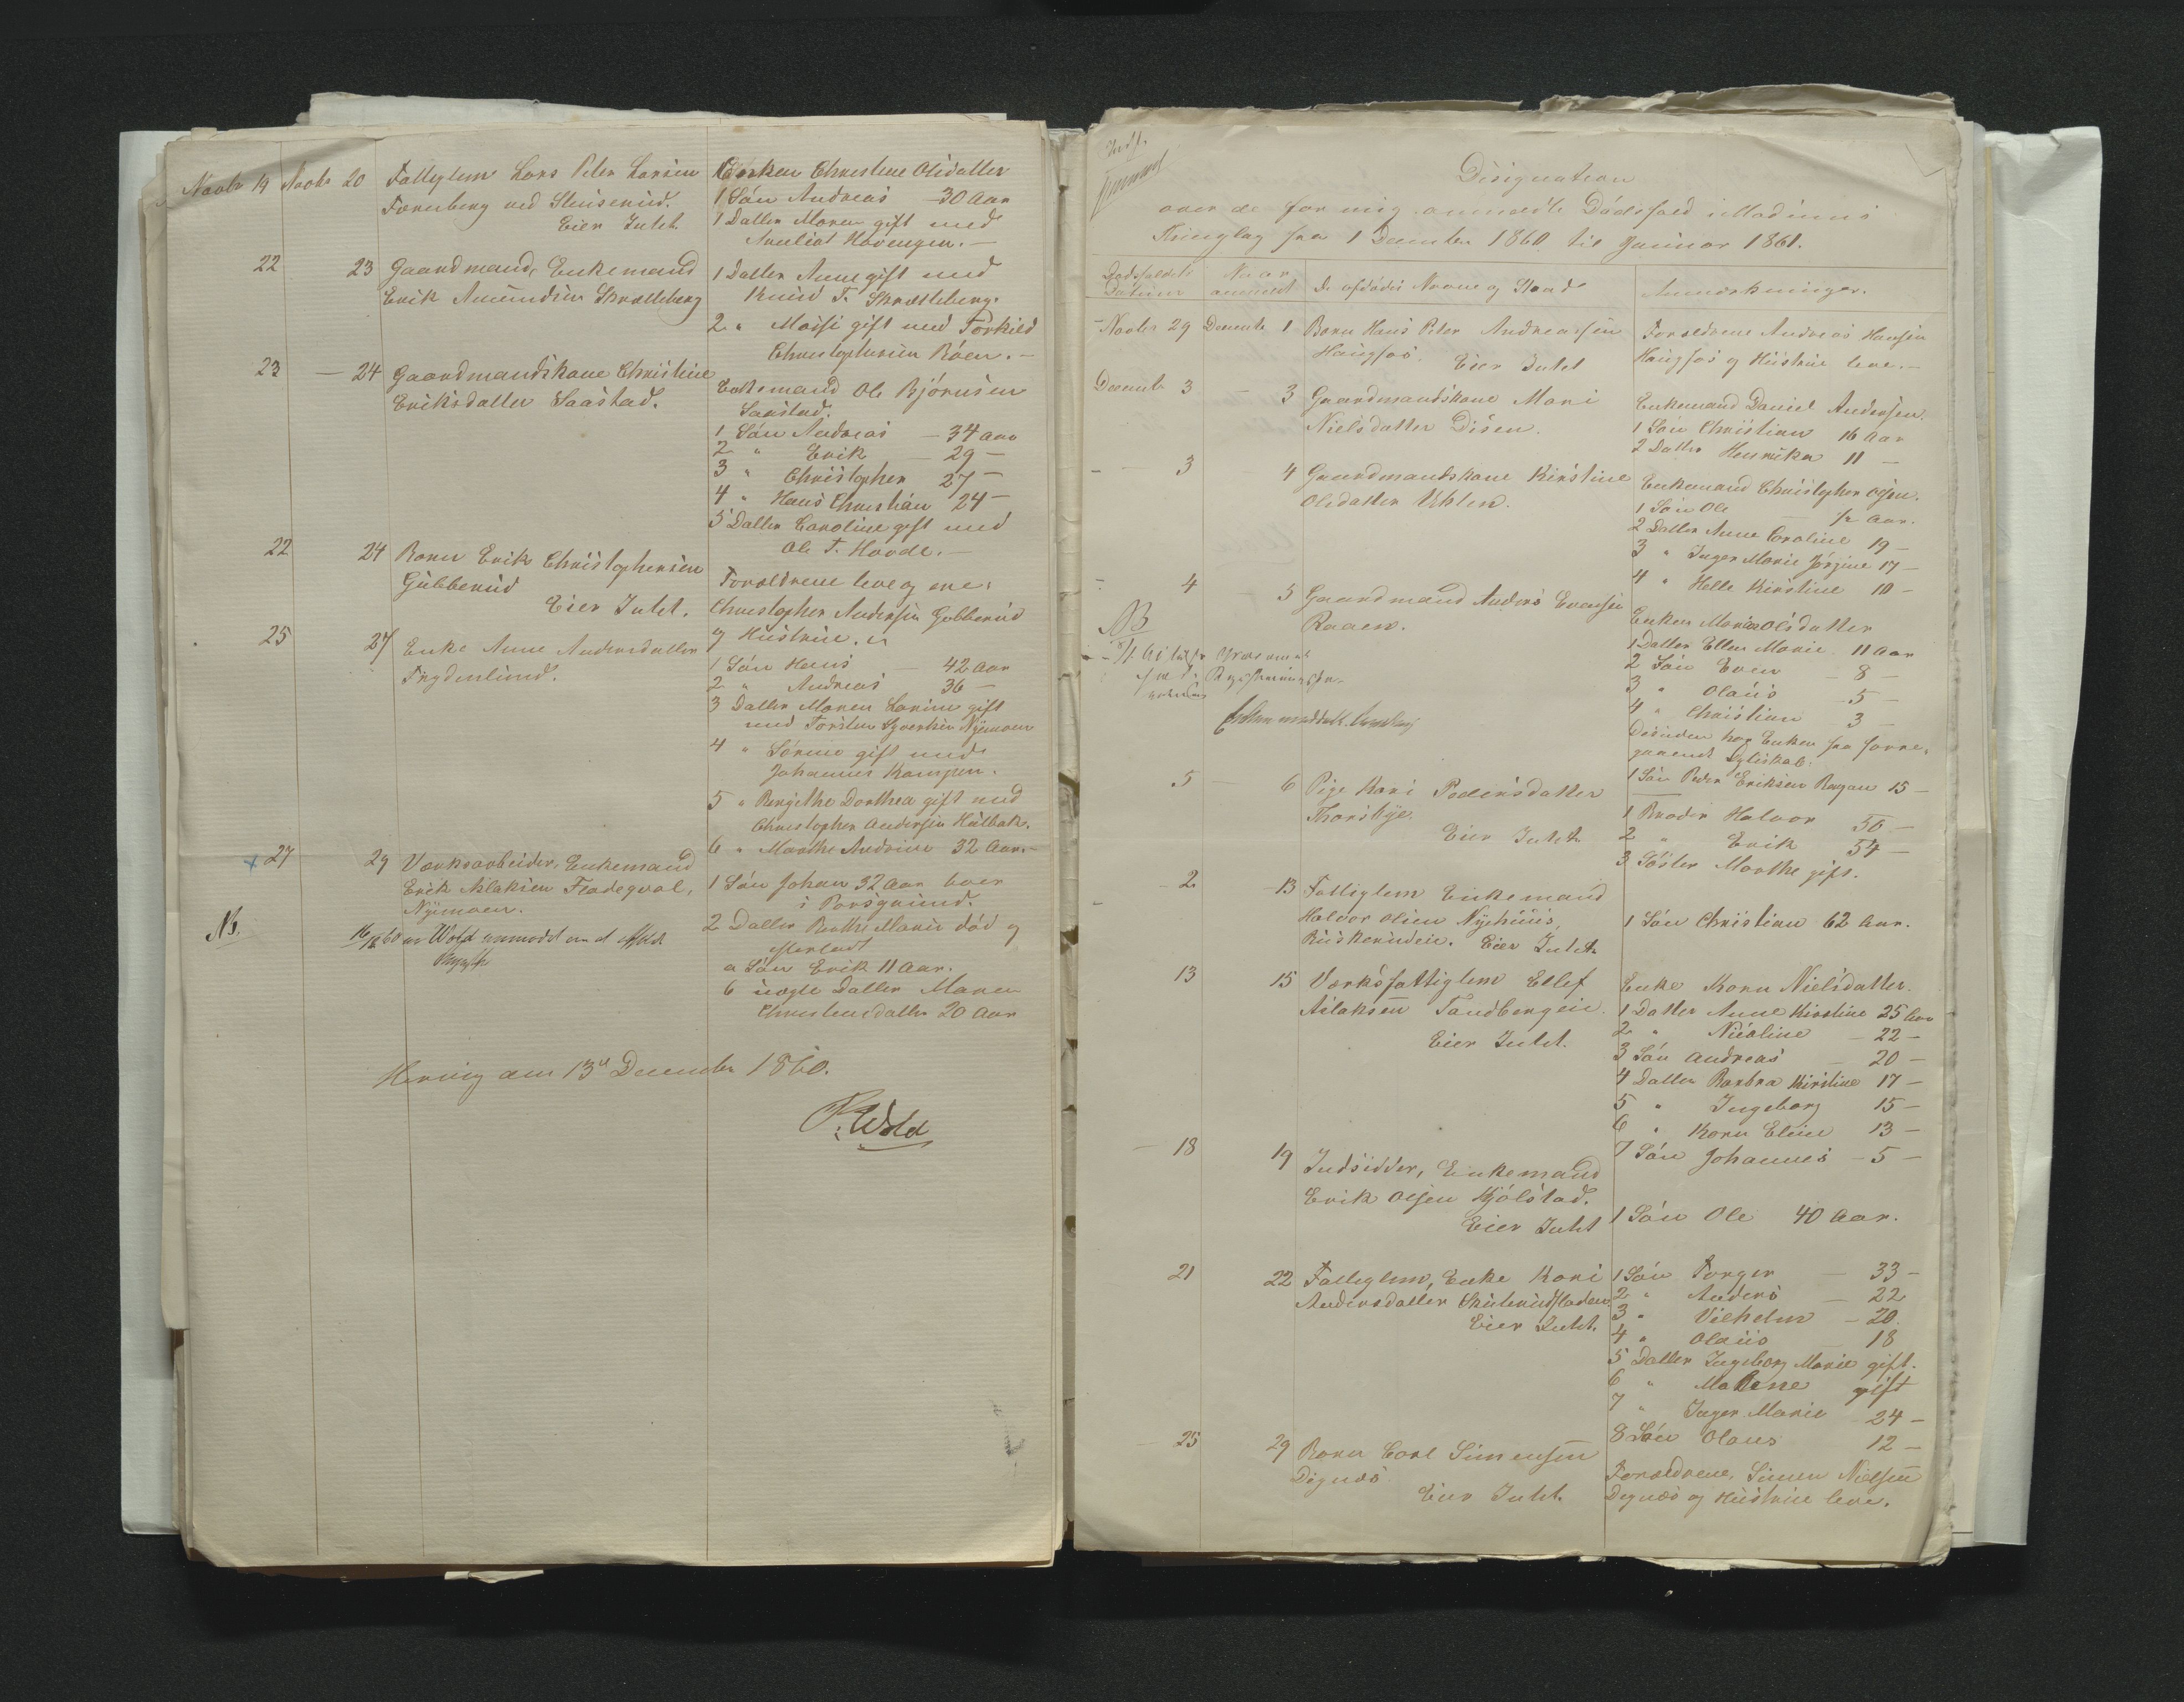 Novbr 19 Novbr 20 Fattiglem Lars Peter Larsen
Tornberg ved Stensrud.
Eier Intet
Enken Christine Olsdatter
1 Søn Andreas - 30 Aar
1 Datter Maren gift med
Hovengen. -
22 23 Gaardmand, Enkemand
Erik Amundsen Skretteberg
1 Datter Anne gift med
Knud T. Skretteberg.
2 " Maisi gift med Torkild
Christophersen Röen. -
23 - 24 Gaardmandskone Christine
Eriksdatter Saastad.
Enkemand Ole Björnsen
Saastad.
1 Søn Andreas - 34 Aar
2 " Erik - 29 -
3 " Christopher 27 -
4 " Hans Christian 24 -
5 Datter Caroline gift med
Ole T. Hovde.
22 24 Barn Erik Christophersen
Gubberud
Eier Intet.
Forældrene leve og ere:
Christopher Andersen Gubberud
og Hustrue.
25 27 Enke Anne Andersdatter
Frydenlund.
1 Søn Hans - 42 Aar
2 " Andreas 36 -
3 Datter Maren Lovise gift
med Torsten Syvertsen Nymoen
4 " Sörine gift med
Johannes Kampen.
5 " Bergithe Dorthea gift med
Christopher Andersen Hulbak.
6 " Marthe Andrine 32 Aar. -
27 29 Værksarbeider, Enkemand
Erik Aslaksen
Nymoen.
1 Søn Johan 32 Aar boer
i Porsgrund.
2 Datter Berthe Marie död og
efterladt
a Søn Erik 11 Aar.
b uægte Datter Maren
Christensdatter 20 Aar
Nb. 16/12 60 er Wold anmodet om at
Herwig den 13de December 1860.
P. Wold
Indf.
Designation
over de for mig anmeldte Dødsfald i Modums
Thinglag fra 1 December 1860 til Januar 1861.
Dødsfaldets Datum
Naar anmeldt
De afdødes Navne og Stand
Anmærkninger.
- Novbr 29 Decembr 1 Barn Hans Peter Andreassen
Haugfos.
Eier Intet
Forældrene Andreas Hansen
Haugfos og Hustrue leve. -
Decembr 3 - 3 Gaardmandskone Mari
Nielsdatter Disen.
Enkemand Daniel Andersen
1 Søn Christian 16 Aar
2 Datter Henrika 11 -
- 3 - 4 Gaardmandskone Kirstine
Olsdatter Uhlen.
Enkemand Christopher Olsen.
1 Søn Ole - 1/2 Aar.
2 Datter Anne Caroline 19 -
3 " Inger Marie Jörgine 17 -
4 " Helle Kirstine 10 -
- 4 - 5 Gaardmand Anders Evensen
Raaen.
NB
Enken Maria Olsdatter
1 Datter Ellen Marie 11 Aar
2 Søn Even - 8 -
3 " Olaus - 5 -
4 " Christian 3 -
Desuden har Enken fra forre-
gaaende Egteskab:
1 Søn Peder Eriksen 15 -
5 - 6 Pige Kari Pedersdatter
Thorsbye.
Eier Intet
1 Broder Halvor 56 -
2 " Erik 54 -
3 Söster Marthe gift.
- 2 - 13 Fattiglem Enkemand
Halvor Olsen Nyehuus,
Buskerudeie. Eier Intet
1 Søn Christian 62 Aar.
13 15 Værksfattiglem Ellef
Aslaksen Tandbergeie.
Eier Intet.
Enke Karn Nielsdatter.
1 Datter Anne Kirstine 25 Aar
2 " Nicoline - 22 -
3 Søn Andreas - 20 -
4 Datter Barbra Kirstine 17 -
5 " Ingeborg 15 -
6 " Karn Eline 13 -
7 Søn Johannes - 5 -
- 18 19 Indsidder, Enkemand
Erik Olsen Hjölstad.
Eier Intet
1 Søn Ole 40 Aar.
21 22 Fattiglem, Enke Kari
Andersdatter
Eier Intet.
1 Søn Torger - 33 -
2 " Anders - 22
3 " Vilhelm - 20.
4 " Olaus - 18
5 Datter Ingeborg Marie gift.
6 " Malene gift
7 " Inger Marie 24 -
8 Søn Olaus 12 -
- 25 29 Barn Carl Simensen
Dignæs
Eier Intet.
Forældrene, Simen Nielsen
Dignæs og Hustrue leve.